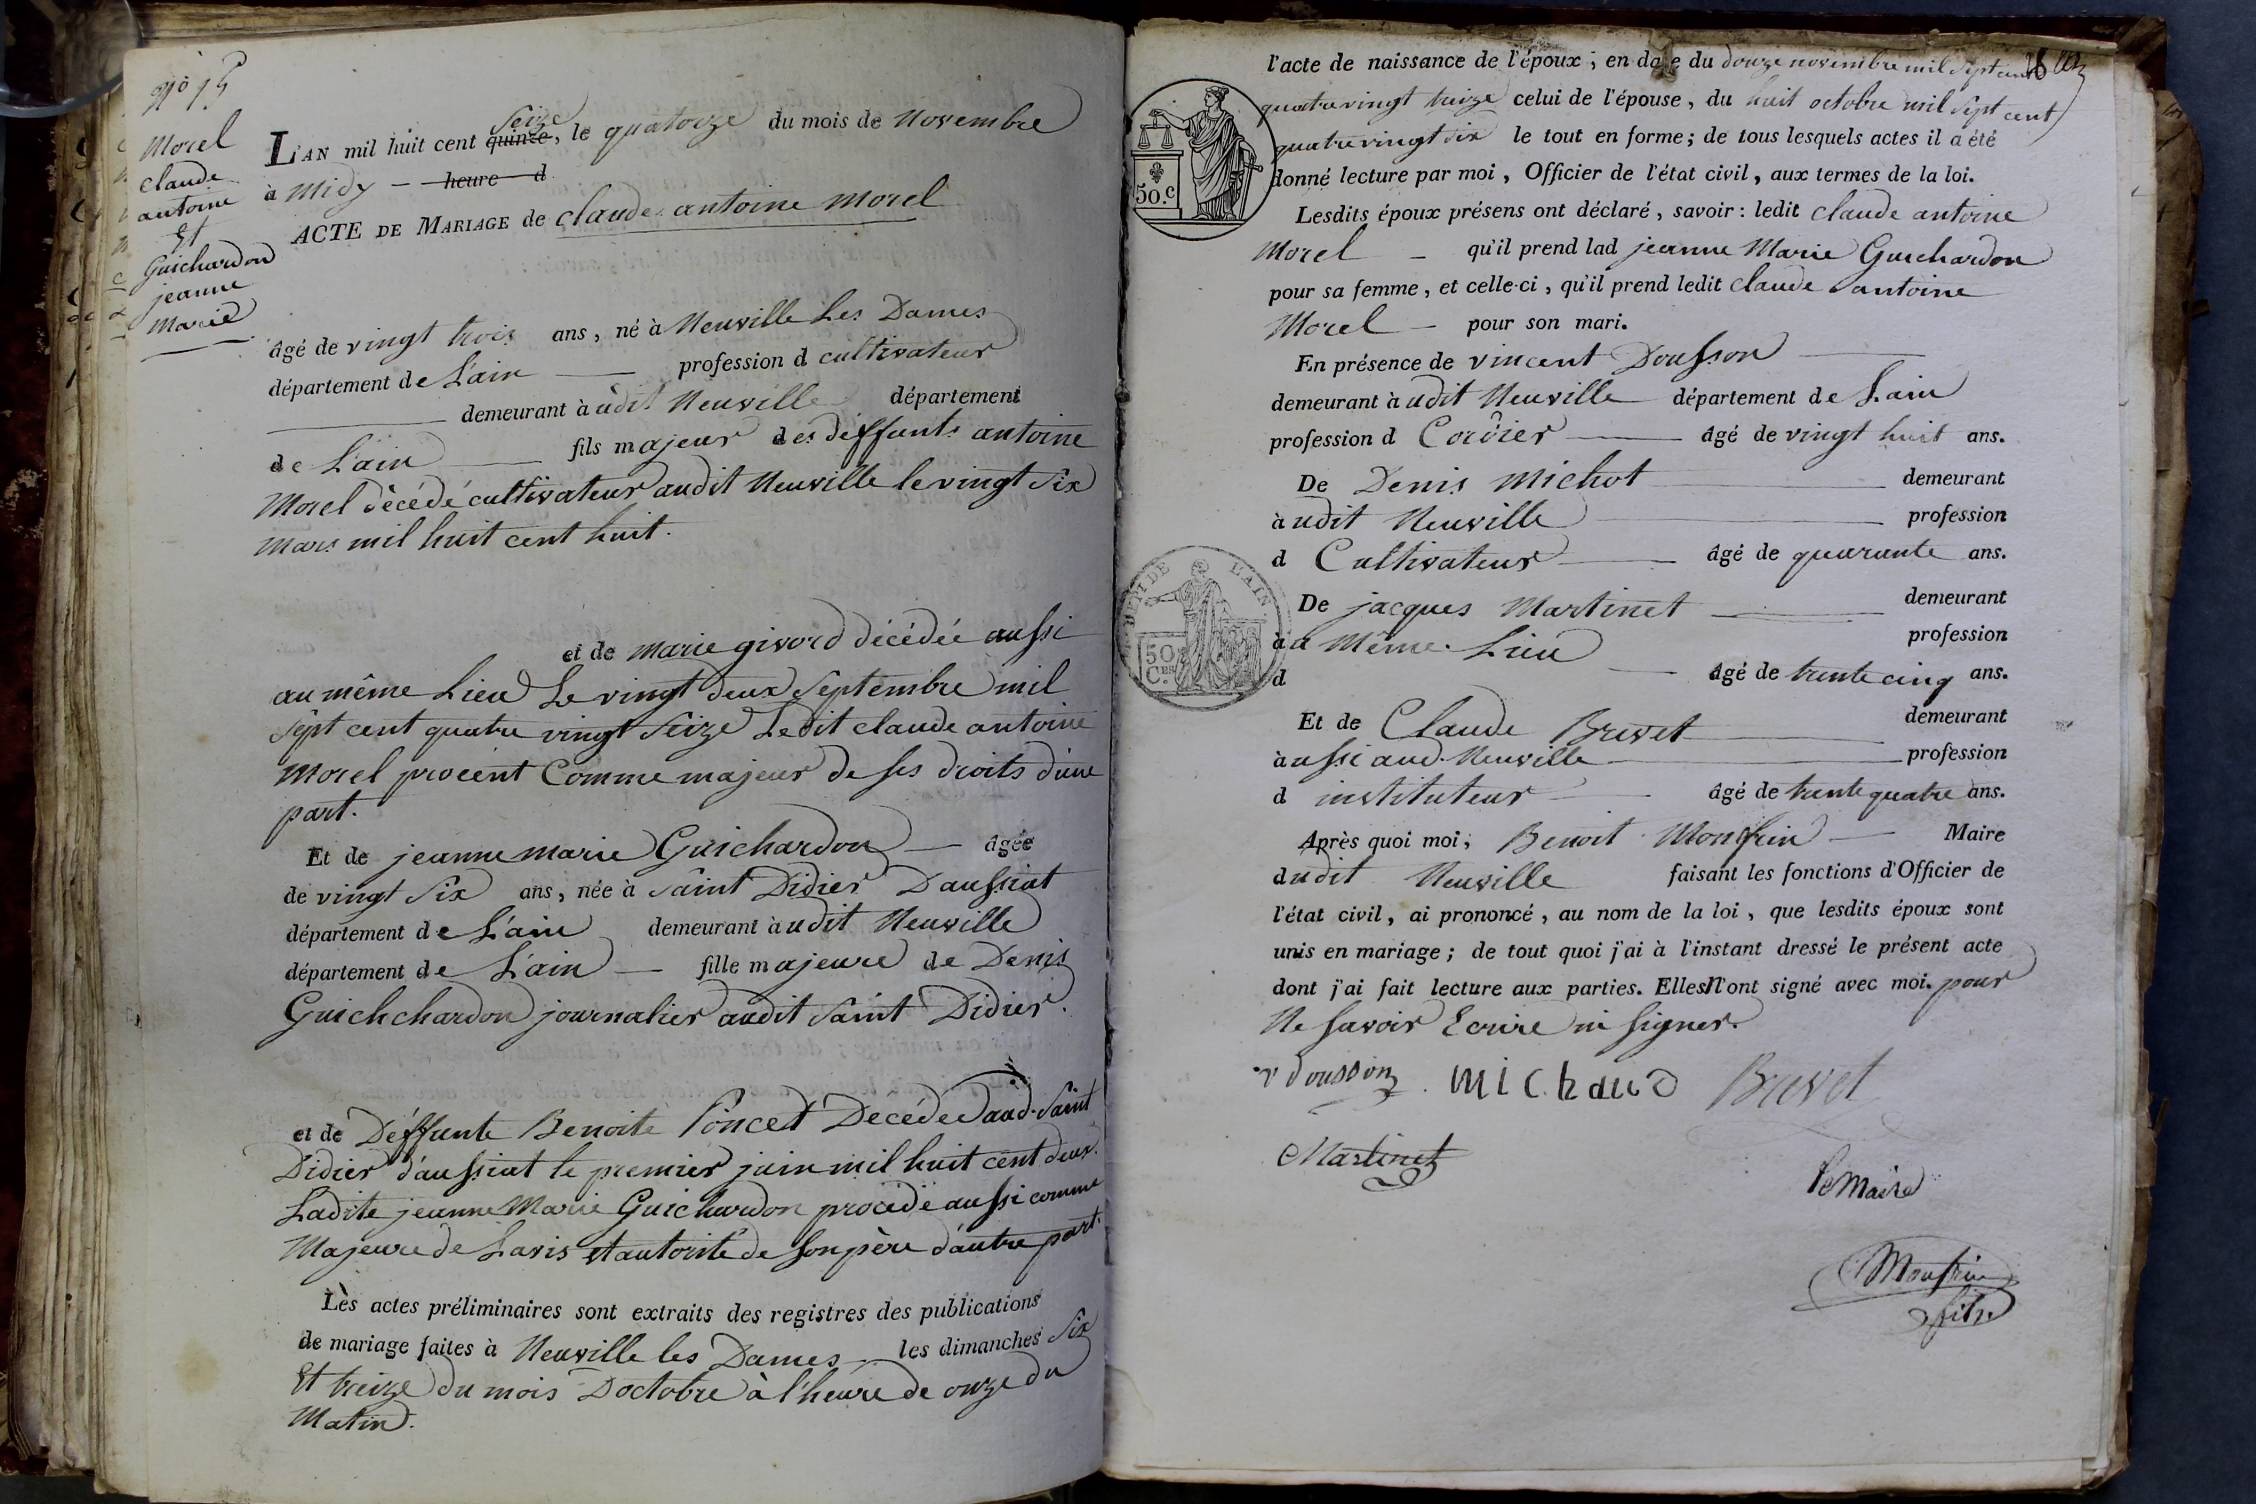 nº 15
Morel
claude
antoine
Et
Guichardon
jeanne
Marie
L'AN mil huit cent quinze, seize le quatorze du mois de Novembre
à Midy — heure d
ACTE DE MARIAGE de claude antoine Morel
âgé de vingt trois ans, né à Neuville Les Dames
département de L'ain — profession d cultivateur
— demeurant à udit Neuville département
de L'ain — fils majeur des deffunts antoine
Morel décédé cultivateur audit Neuville le vingt six
Mars mil huit cent huit.
et de Marie givord décédée aussi
au même Lieu Le vingt deux Septembre mil
Sept cent quatre vingt Seize Ledit claude antoine
Morel procént Comme majeur de ses droits d'une
part.
Et de jeanne marie Guichardon — âgée
de vingt Six ans, née à Saint Didier Daussiat
département de L'ain demeurant à udit Neuville
département de L'ain — fille majeure de Denis
Guichchardon journalier audit Saint Didier.
et de Déffunte Benoite Poncet Decédée aud. Saint
Didier d'aussiat le premier juin mil huit cent deux.
Ladite jeanne Marie Guichardon procéde aussi comme
Majeure de Lavis et autorité de son père d'autre part.
Les actes préliminaires sont extraits des registres des publications
de mariage faites à Neuville les Dames — les dimanches Six
Et treize du mois Doctobre à l'heure de onze du
Matin.
l'acte de naissance de l'époux; en date du douze novembre mil sept cent
quatrevingt treize celui de l'épouse, du huit octobre mil sept cent
quatrevingt dix le tout en forme; de tous lesquels actes il a été
donné lecture par moi, Officier de l'état civil, aux termes de la loi.
50.c
Lesdits époux présens ont déclaré, savoir: ledit claude antoine
Morel — qu'il prend lad jeanne Marie Guichardon
pour sa femme, et celle-ci, qu'il prend ledit claude antoine
Morel — pour son mari.
En présence de vincent Dousson —
demeurant à udit Neuville département de L'ain
profession d Cordier — âgé de vingt huit ans.
De Denis Michot — demeurant
à udit Neuville — profession
d Cultivateur — âgé de quarante ans.
DEPT DE L'AIN
50 Ces
De jacques Martinet — demeurant
à u Même Lieu profession
d — âgé de trente cinq ans.
Et de Claude Brevet — demeurant
à ussi aud. Neuville — profession
d instituteur — âgé de trente quatre ans.
Après quoi moi, Benoit Monfrin — Maire
dudit Neuville faisant les fonctions d'Officier de
l'état civil, ai prononcé, au nom de la loi, que lesdits époux sont
unis en mariage; de tout quoi j'ai à l'instant dressé le présent acte
dont j'ai fait lecture aux parties. Elles N'ont signé avec moi. pour
Ne Savoir Ecrire ni Signer.
v dousson Michaud Brevet
Martinet
le Maire
Monfrin
fils